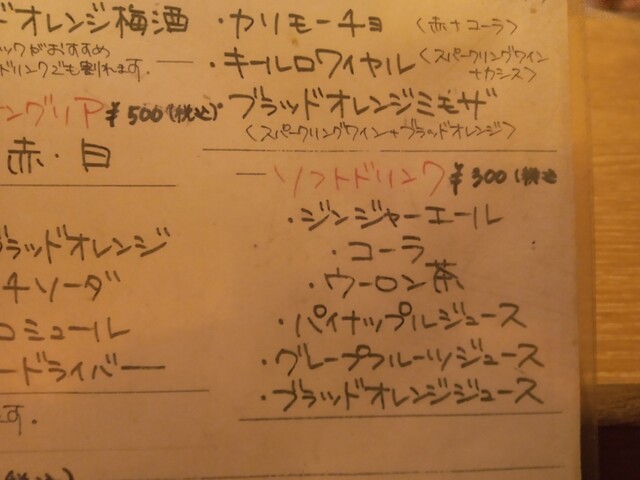 ドオレンジ梅酒
ックがおすすめ
ドリンクでも割れます.
ングリア ¥500(税込)
赤・白
ブラッドオレンジ
チソーダ
コミュール
ードライバー
ます.
(税込)
・カリモーチョ 〈赤+コーラ〉
・キールロワイヤル 〈スパークリングワイン
+カシス〉
・ブラッドオレンジミモザ
〈スパークリングワイン+ブラッドオレンジ〉
ソフトドリンク ¥300(税込
・ジンジャーエール
・コーラ
・ウーロン茶
・パイナップルジュース
・グレープフルーツジュース
・ブラッドオレンジジュース